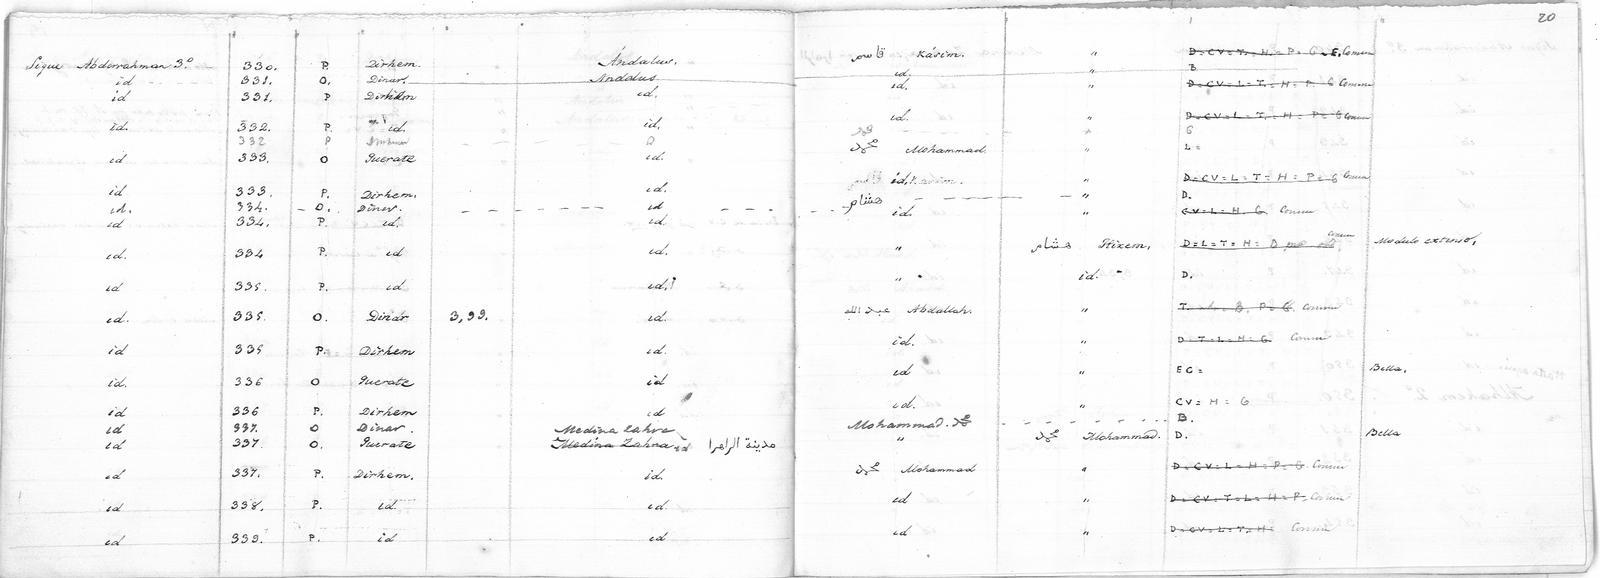 20
Sigue Abderrahman 3.º 330. P. Dirhem. Ándalus. قاسم Kásim. " D=CV=T=H=P=G=E. Comun
id 331. O. Dinar. Andalus. id. " B
id 331. P Dirhem id. id. " D=CV=L=T=H=P=G Comun
id. 332. P. id. id. id. " D=CV=L=T=H=P=G Comun
332 P " G
id 333. O Querate id. محمد Mohammad. " L=
id 333. P. Dirhem. id. id. Kasim. " D=CV=L=T=H=P=G Comun
id. 334. O. Dinar. id هشام " D.
id 334. P. id. id. id. " CV=L=H. G Comun
id. 334 P. id id. " هشام Hixem. D=L=T=H= Comun Modulo extenso,
id 335. P. id id. " id. D.
id. 335. O. Dinar 3,99. id. عبد الله Abdallah. " T. B. P=G. Comun
id 335 P. Dirhem id. id. " D T=L=H=G Comun
id. 336 O Querate id id " EG= Bella.
id 336 P. Dirhem id id. " CV=H=G
id 337. O Dinar. Medina Zahra Mohammad. محمد B.
id 337. O. Querate Medina Zahra id مدينة الزاهرا " محمد Mohammad. D. Bella
id 337. P. Dirhem. id. محمد Mohammad " D=CV=L=H=P=G Comun
id 338. P. id. id. id " D=CV=T=L=H=P. Comun
id 339. P. id id id " D=CV=L=T=H= Comun